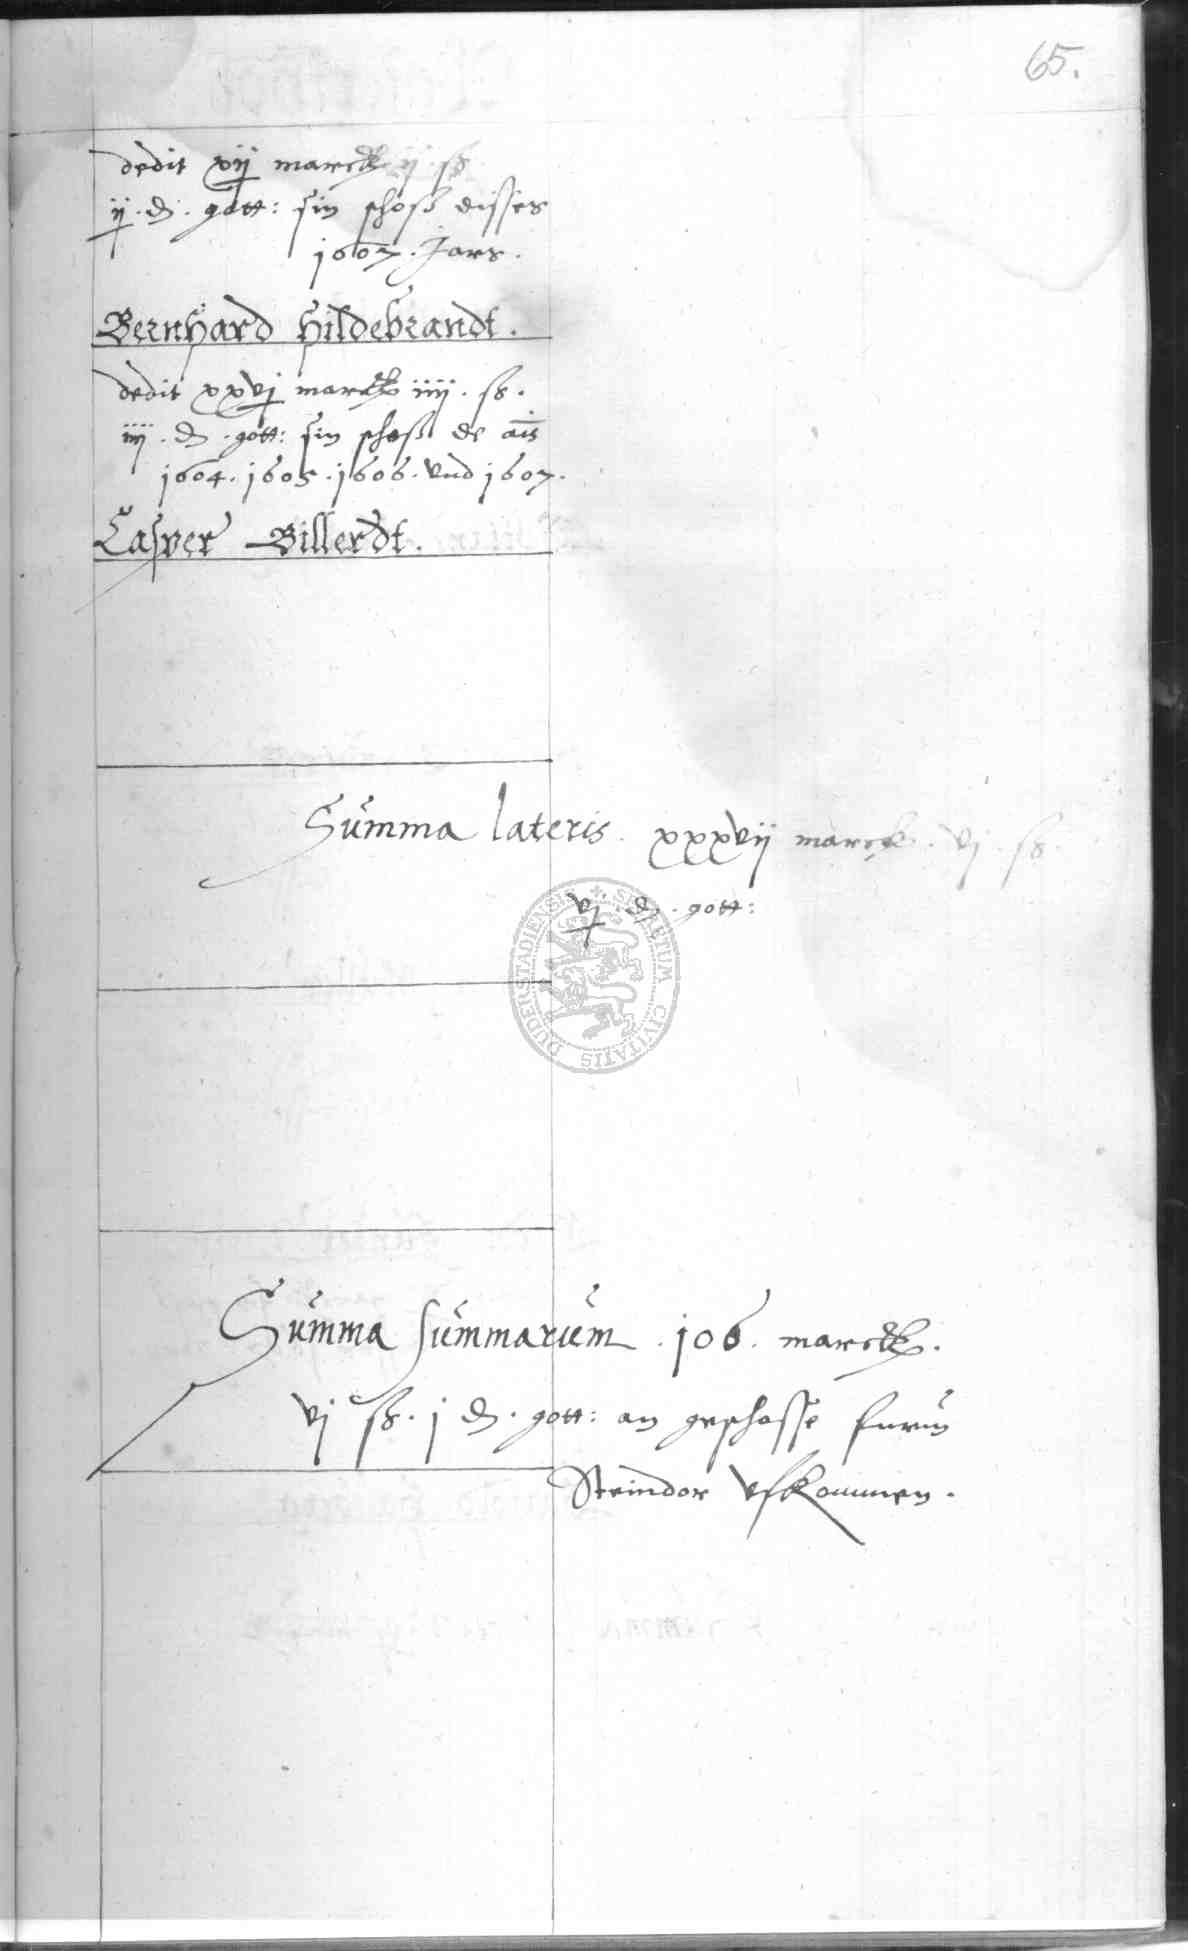 65.
dedit xij marck ij ß
ij. d. gott: sin schoß disses
1607. Jars.
Bernhard Hildebrandt.
dedit xxvj marck iiij. ß.
iiij. d. gott: sin schoß de ais
1604. 1605. 1606. vnd 1607.
Casper Billerdt.
Summa lateris. xxxvij marck. vj. ß.
vj. d. gott:
SECRETUM CIVITATIS DUDERSTADIENSIS
Summa summarum. 106. marck.
vj ß. j d. gott: an geschosse furm
Steindor vfkommen.